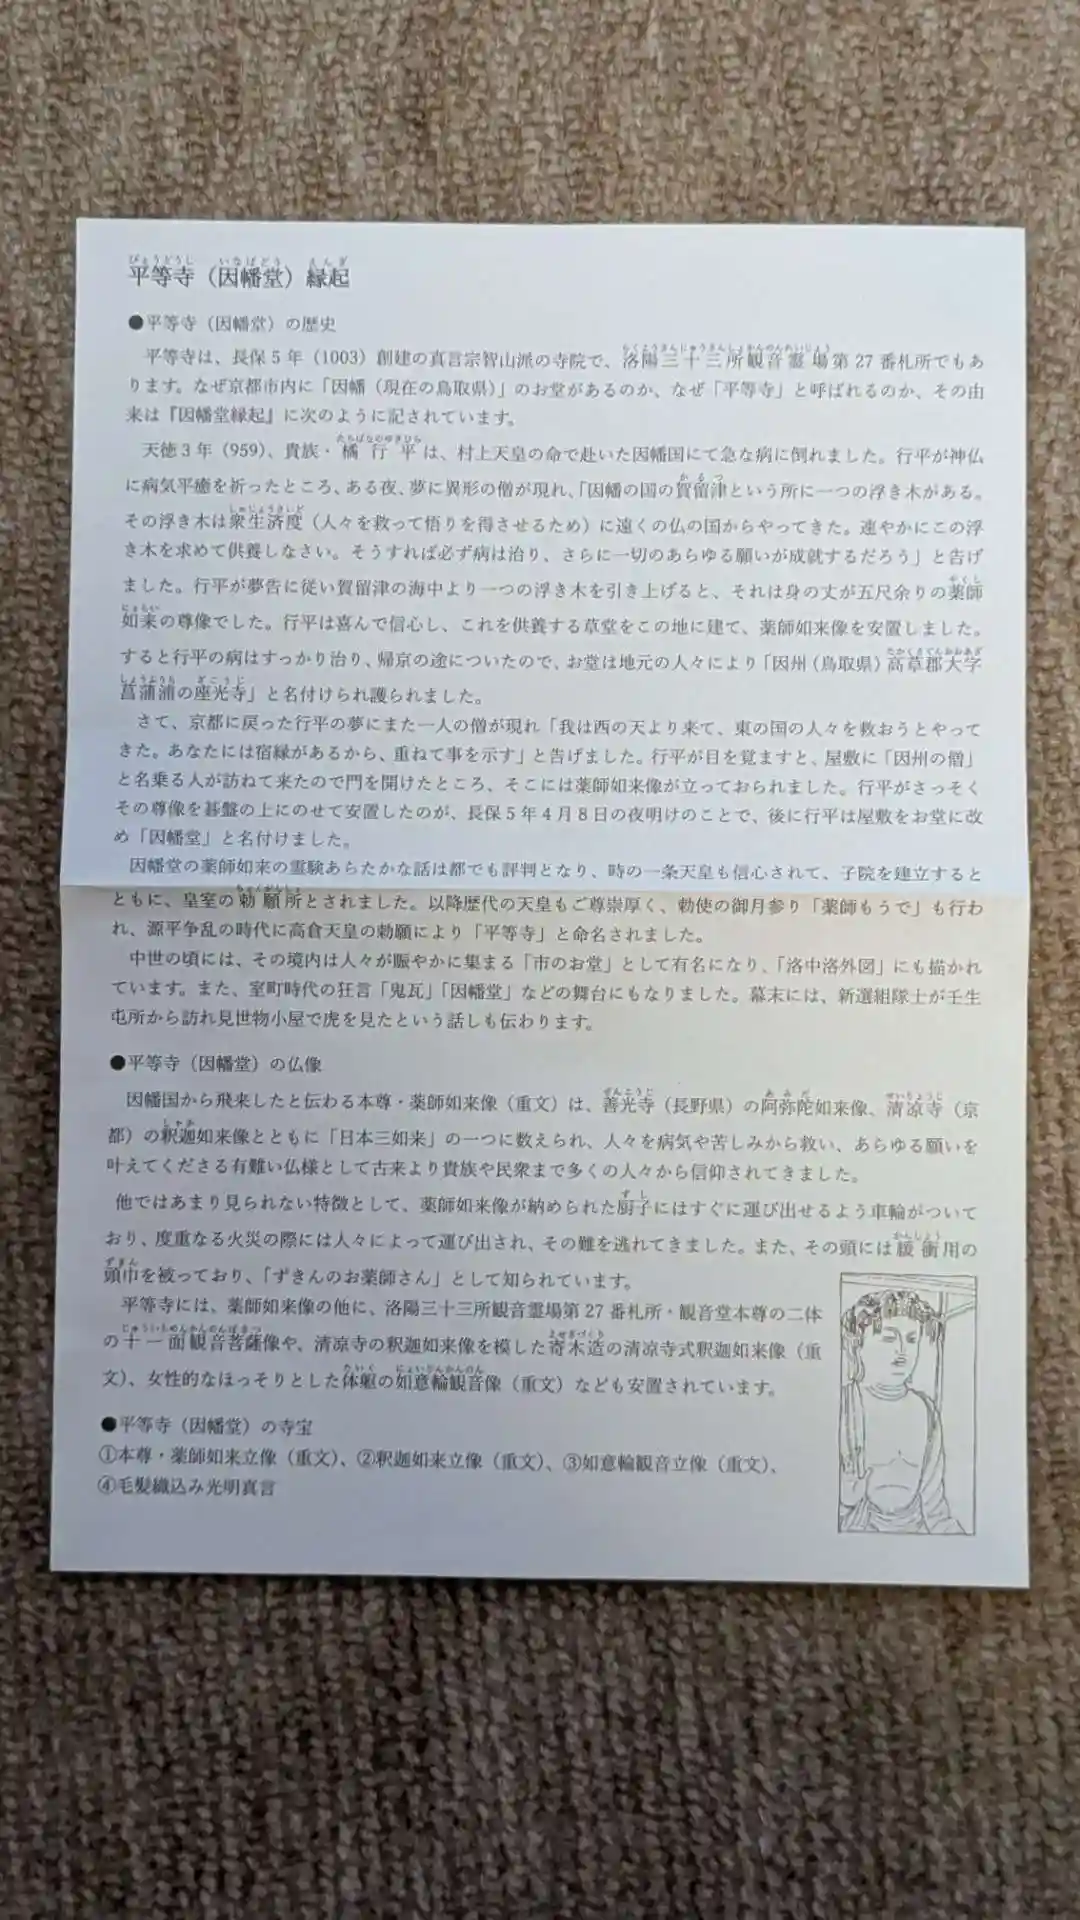 平等寺（因幡堂）縁起
●平等寺（因幡堂）の歴史
平等寺は、長保5年（1003）創建の真言宗智山派の寺院で、洛陽三十三所観音霊場第27番札所でもあ
ります。なぜ京都市内に「因幡（現在の鳥取県）」のお堂があるのか、なぜ「平等寺」と呼ばれるのか、その由
来は『因幡堂縁起』に次のように記されています。
天徳3年（959）、貴族・橘行平は、村上天皇の命で赴いた因幡国にて急な病に倒れました。行平が神仏
に病気平癒を祈ったところ、ある夜、夢に異形の僧が現れ、「因幡の国の賀留津という所に一つの浮き木がある。
その浮き木は衆生済度（人々を救って悟りを得させるため）に遠くの仏の国からやってきた。速やかにこの浮
き木を求めて供養しなさい。そうすれば必ず病は治り、さらに一切のあらゆる願いが成就するだろう」と告げ
ました。行平が夢告に従い賀留津の海中より一つの浮き木を引き上げると、それは身の丈が五尺余りの薬師
如来の尊像でした。行平は喜んで信心し、これを供養する草堂をこの地に建て、薬師如来像を安置しました。
すると行平の病はすっかり治り、帰京の途についたので、お堂は地元の人々により「因州（鳥取県）高草郡大字
菖蒲浦の座光寺」と名付けられ護られました。
さて、京都に戻った行平の夢にまた一人の僧が現れ「我は西の天より来て、東の国の人々を救おうとやって
きた。あなたには宿縁があるから、重ねて事を示す」と告げました。行平が目を覚ますと、屋敷に「因州の僧」
と名乗る人が訪ねて来たので門を開けたところ、そこには薬師如来像が立っておられました。行平がさっそく
その尊像を碁盤の上にのせて安置したのが、長保5年4月8日の夜明けのことで、後に行平は屋敷をお堂に改
め「因幡堂」と名付けました。
因幡堂の薬師如来の霊験あらたかな話は都でも評判となり、時の一条天皇も信心されて、子院を建立すると
ともに、皇室の勅願所とされました。以降歴代の天皇もご尊崇厚く、勅使の御月参り「薬師もうで」も行わ
れ、源平争乱の時代に高倉天皇の勅願により「平等寺」と命名されました。
中世の頃には、その境内は人々が賑やかに集まる「市のお堂」として有名になり、「洛中洛外図」にも描かれ
ています。また、室町時代の狂言「鬼瓦」「因幡堂」などの舞台にもなりました。幕末には、新選組隊士が壬生
屯所から訪れ見世物小屋で虎を見たという話しも伝わります。
●平等寺（因幡堂）の仏像
因幡国から飛来したと伝わる本尊・薬師如来像（重文）は、善光寺（長野県）の阿弥陀如来像、清凉寺（京
都）の釈迦如来像とともに「日本三如来」の一つに数えられ、人々を病気や苦しみから救い、あらゆる願いを
叶えてくださる有難い仏様として古来より貴族や民衆まで多くの人々から信仰されてきました。
他ではあまり見られない特徴として、薬師如来像が納められた厨子にはすぐに運び出せるよう車輪がついて
おり、度重なる火災の際には人々によって運び出され、その難を逃れてきました。また、その頭には緩衝用の
頭巾を被っており、「ずきんのお薬師さん」として知られています。
平等寺には、薬師如来像の他に、洛陽三十三所観音霊場第27番札所・観音堂本尊の二体
の十一面観音菩薩像や、清凉寺の釈迦如来像を模した寄木造の清凉寺式釈迦如来像（重
文）、女性的なほっそりとした体躯の如意輪観音像（重文）なども安置されています。
●平等寺（因幡堂）の寺宝
①本尊・薬師如来立像（重文）、②釈迦如来立像（重文）、③如意輪観音立像（重文）、
④毛髪織込み光明真言